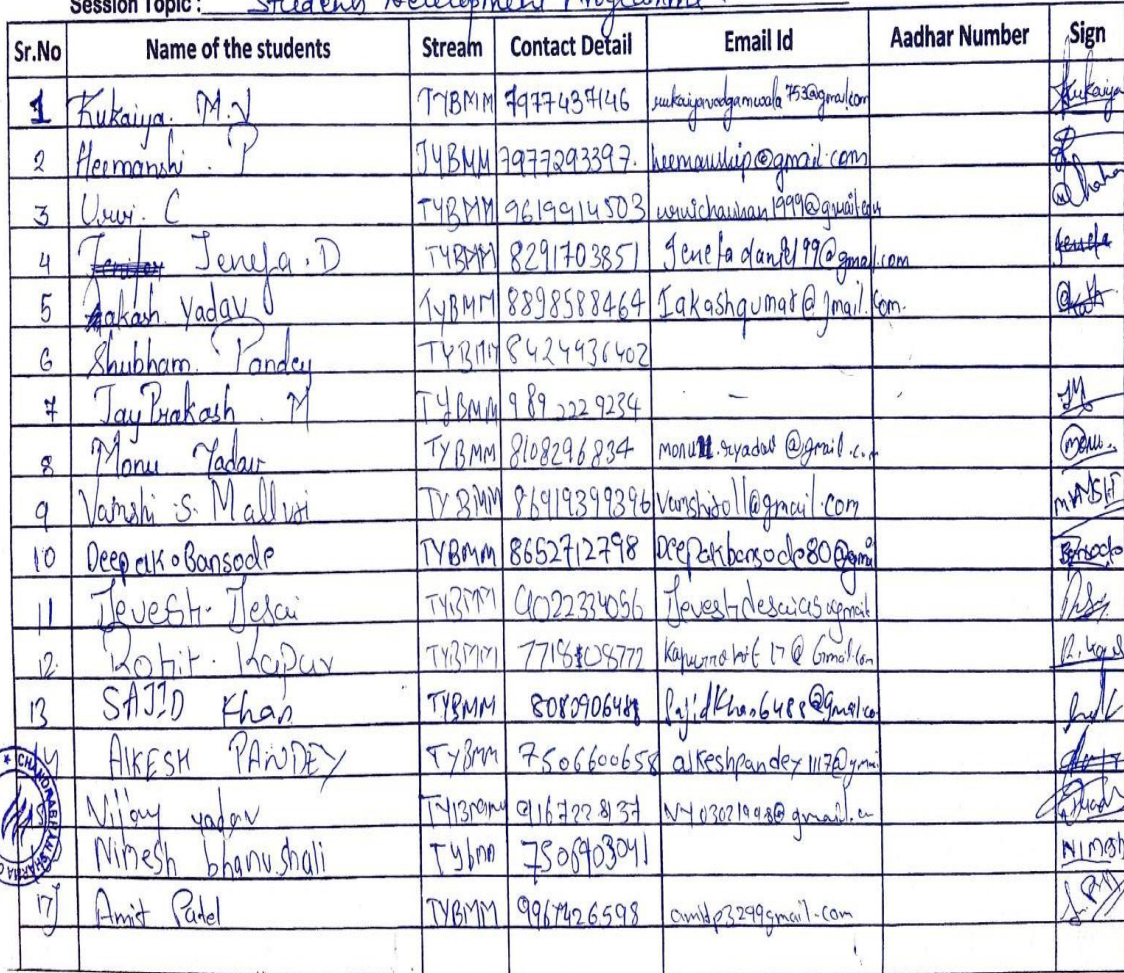 Session Topic : Students Development Programme
Sr.No Name of the students Stream Contact Detail Email Id Aadhar Number Sign
1 Rukaiya. M.V TYBMM 7977437146 rukaiyavadgamwala753@gmail.com Rukaiya
2 Heemanshi . P TYBMM 7977293397. heemanship@gmail.com
3 Urvi. C TYBMM 9619914503 urvichauhan1999@gmail.com
4 Jenefa . D TYBMM 8291703851 Jenefadaniel99@gmail.com Jenefa
5 Aakash Yadav TYBMM 8898588464 Iakashqumar@gmail.com.
6 Shubham. Pandey TYBMM 8424936402
7 JayPrakash . M TYBMM 989 222 9234 - - JM
8 Monu Yadav TYBMM 8108296834 @gmail.c Monu.
9 Vamshi S. Malluri TYBMM 86919399396 @gmail.com VAMSHI
10 Deepak Bansode TYBMM 8652712798 Deepakbansode80@gmi Bansode
11 Jevesh Desai TYBMM 9022334056
12. Rohit . Kapur TYBMM 7718108772 17@Gmail.com
13 SAJID Khan TYBMM 8080906488 SajidKhan6488@gmail.co
14 AlKESH PANDEY TYBMM 7506600658 alkeshpandey1117@gmai
Vijay yadav 9167228137 NY03021998@gmail.c
Nimesh bhanushali Tybmm 7506903041 NIMESH
17 Amit Patel TYBMM 9967426598 amitdp3299gmail.com
CHANDRABHAN SHARMA